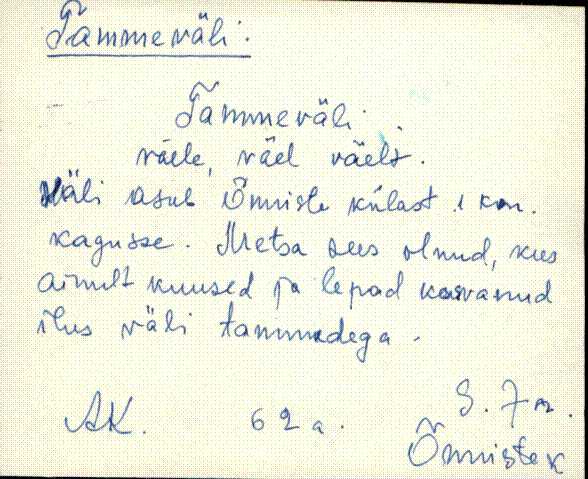 Tammeväli.
Tammeväli.
väele, väel väelt.
Väli asub Õnniste külast 1 km.
kagusse. Metsa sees olnud, kus
ainult kuused ja lepad kasvanud
ilus väli tammedega.
AK. 62 a.
Õnniste k